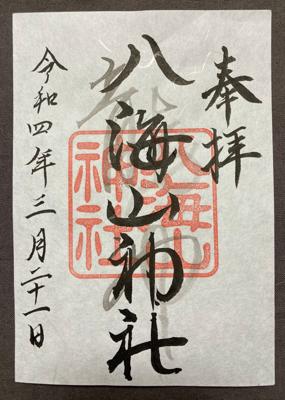 奉拝
八海山神社
令和四年三月二十一日
八海山
神社